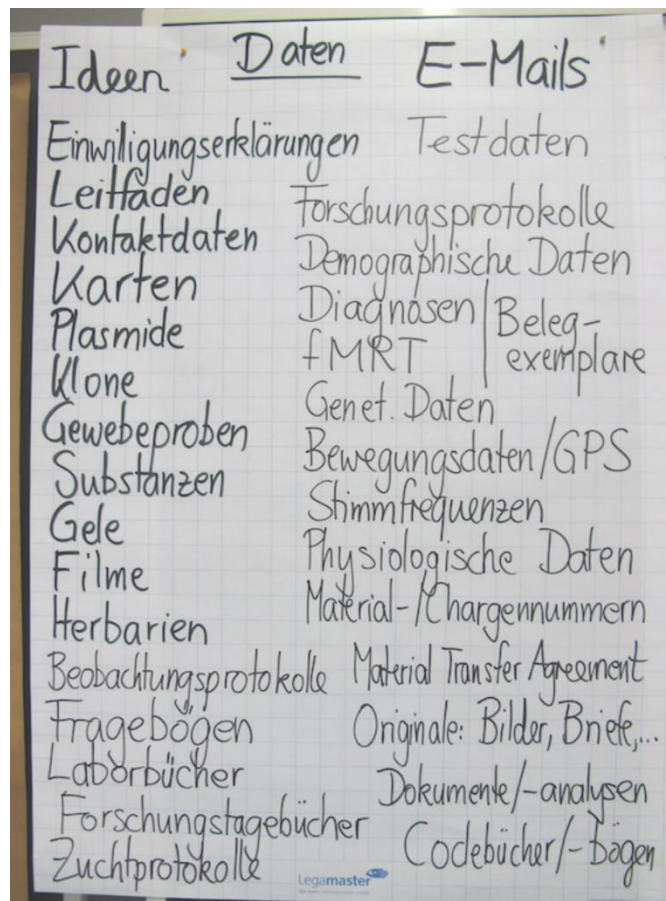 Daten
Ideen
Einwiligungserklärungen
Leitfäden
Kontaktdaten
Karten
Plasmide
Klone
Gewebeproben
Substanzen
Gele
Filme
Herbarien
Beobachtungsprotokolle
Fragebögen
Laborbücher
Forschungstagebücher
Zuchtprotokolle
E-Mails
Testdaten
Forschungsprotokolle
Demographische Daten
Diagnosen
fMRT
Beleg-
exemplare
Genet. Daten
Bewegungsdaten/GPS
Stimmfrequenzen
Physiologische Daten
Material-/Chargennummern
Material Transfer Agreement
Originale: Bilder, Briefe,...
Dokumente/-analysen
Codebücher/-bögen
Legamaster